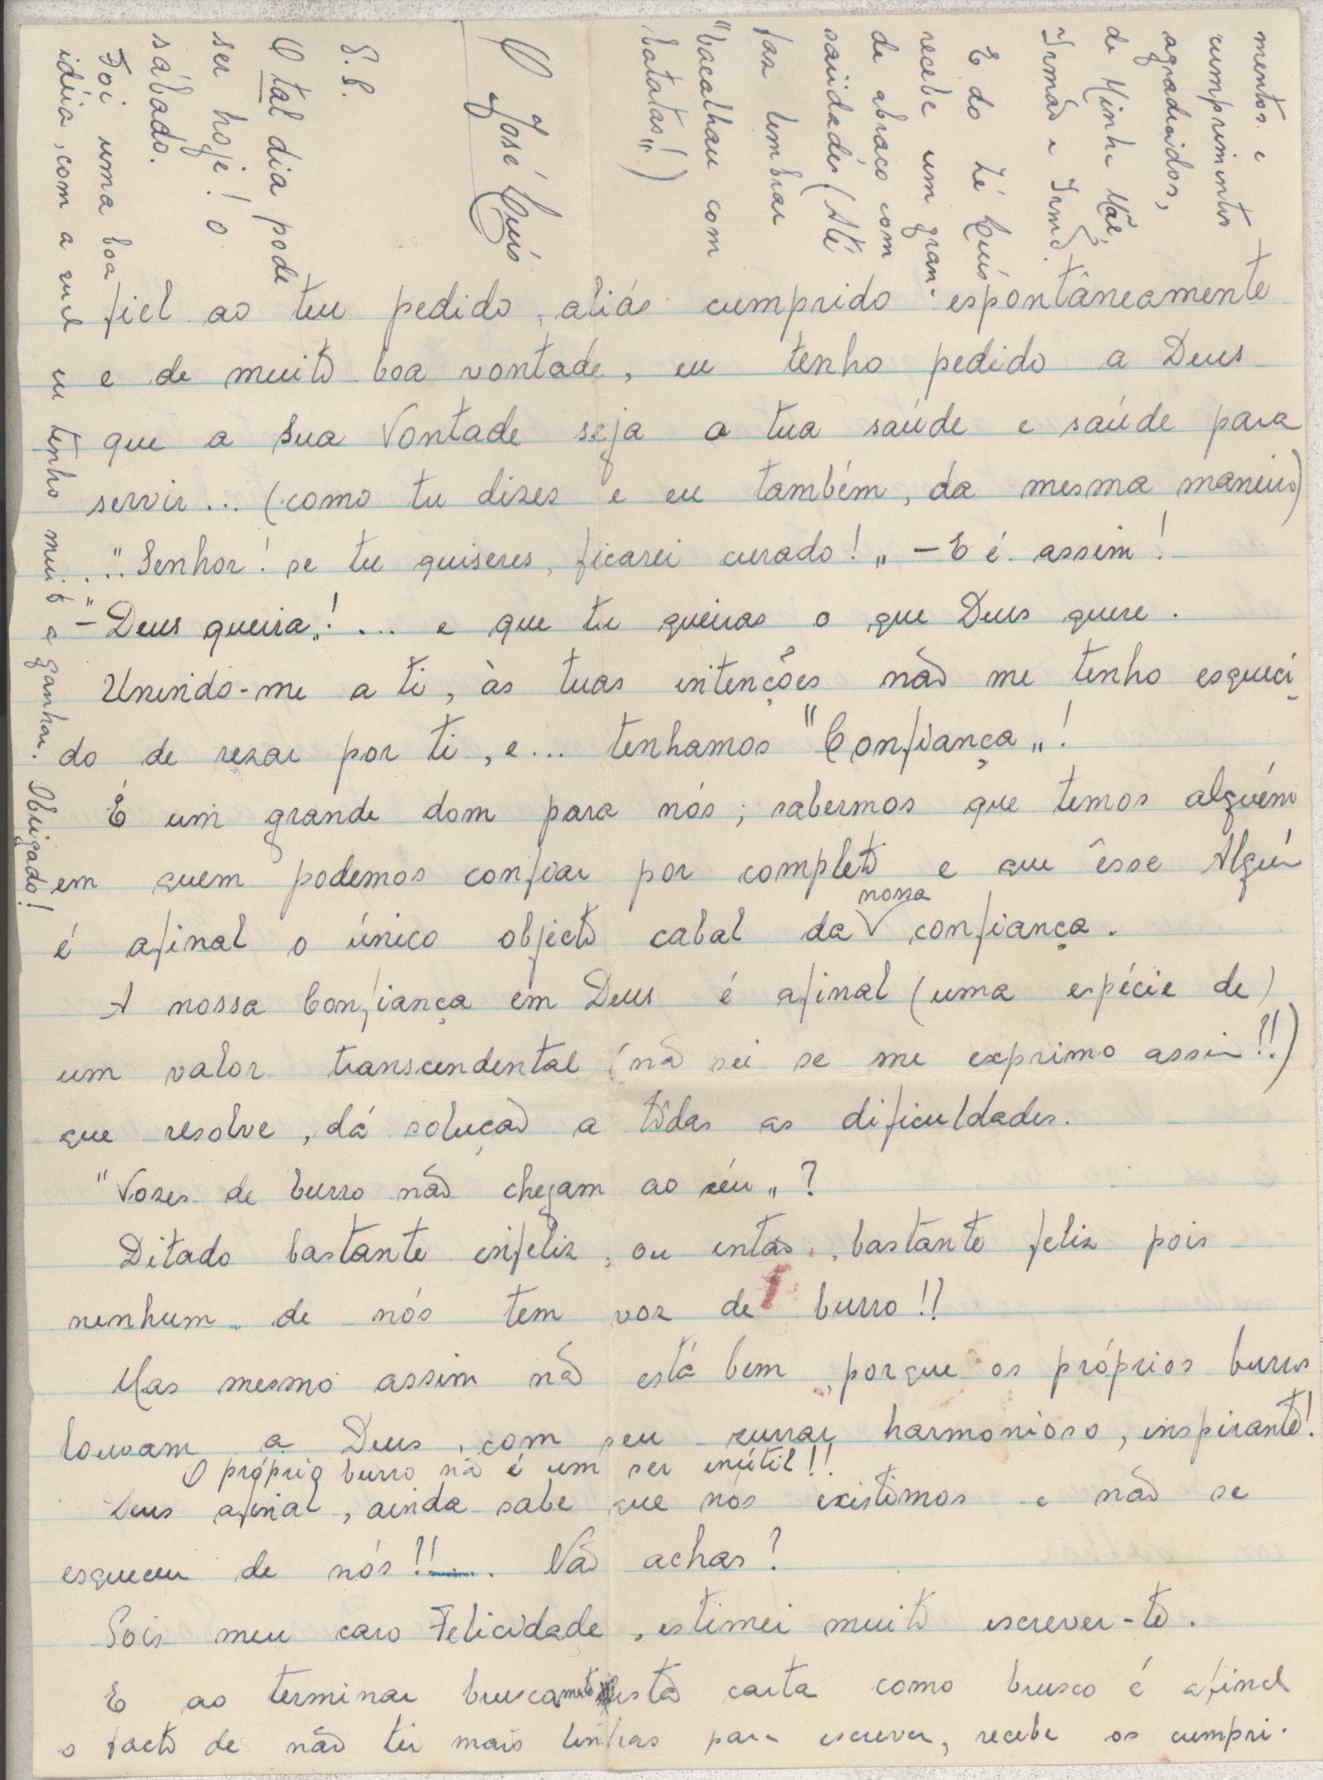 fiel ao teu pedido, aliás cumprido espontâneamente
e de muito boa vontade, eu tenho pedido a Deus
que a Sua Vontade seja a tua saúde e saúde para
servir... (como tu dizes e eu também, da mesma maneira)
..."Senhor! se tu quiseres, ficarei curado!" — E é assim!
— "Deus queira"!... e que tu queiras o que Deus quere.
Unindo-me a ti, às tuas intenções não me tenho esqueci-
do de rezar por ti, e... tenhamos "Confiança"!
É um grande dom para nós; sabermos que temos alguém
em quem podemos confiar por completo e que êsse Alguém
é afinal o único objecto cabal da nossa confiança.
A nossa Confiança em Deus é afinal (uma espécie de)
um valor transcendental (não sei se me exprimo assim!!)
que resolve, dá solução a tôdas as dificuldades.
"Vozes de burro não chegam ao céu"?
Ditado bastante infeliz, ou então, bastante feliz pois
nenhum de nós tem voz de burro!!
Mas mesmo assim não está bem, porque os próprios burros
louvam a Deus, com seu zurrar harmonioso, inspirante!
O próprio burro não é um ser inútil!!
Deus afinal, ainda sabe que nós existimos e não se
esqueceu de nós!!.... Não achas?
Pois meu caro Felicidade, estimei muito escrever-te.
E ao terminar bruscamente esta carta como brusco é afinal
o facto de não ter mais linhas para escrever, recebe os cumpri-
mentos e
cumprimentos
agradecidos,
de Minha Mãe,
Irmãs e Irmão.
E do Zé Luís
recebe um gran-
de abraço com
saüdades (Até
faz lembrar
"bacalhau com
batatas!")
José Luís
P.S.
O tal dia pode
ser hoje! O
sábado.
Foi uma boa
idéia, com a qual eu tenho muito a ganhar. Obrigado!